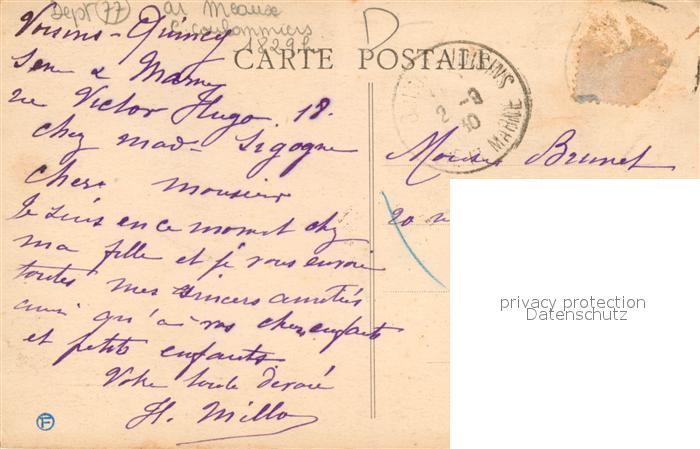 Dept (77)
ar Meaux
Ct Coulommiers
18296
D
CARTE POSTALE
2 - 9
30
MARNE
Voisins-Quincy
Seine & Marne
rue Victor Hugo. 18.
chez mad. Sigogne
cher monsieur
Je suis en ce moment chez
ma fille et je vous envoie
toutes mes sincers amitiés
ainsi qu'à vos chers enfants
et petits enfants
Votre toute dévoué
H. Millo
Monsieur Brunet
20
privacy protection
Datenschutz